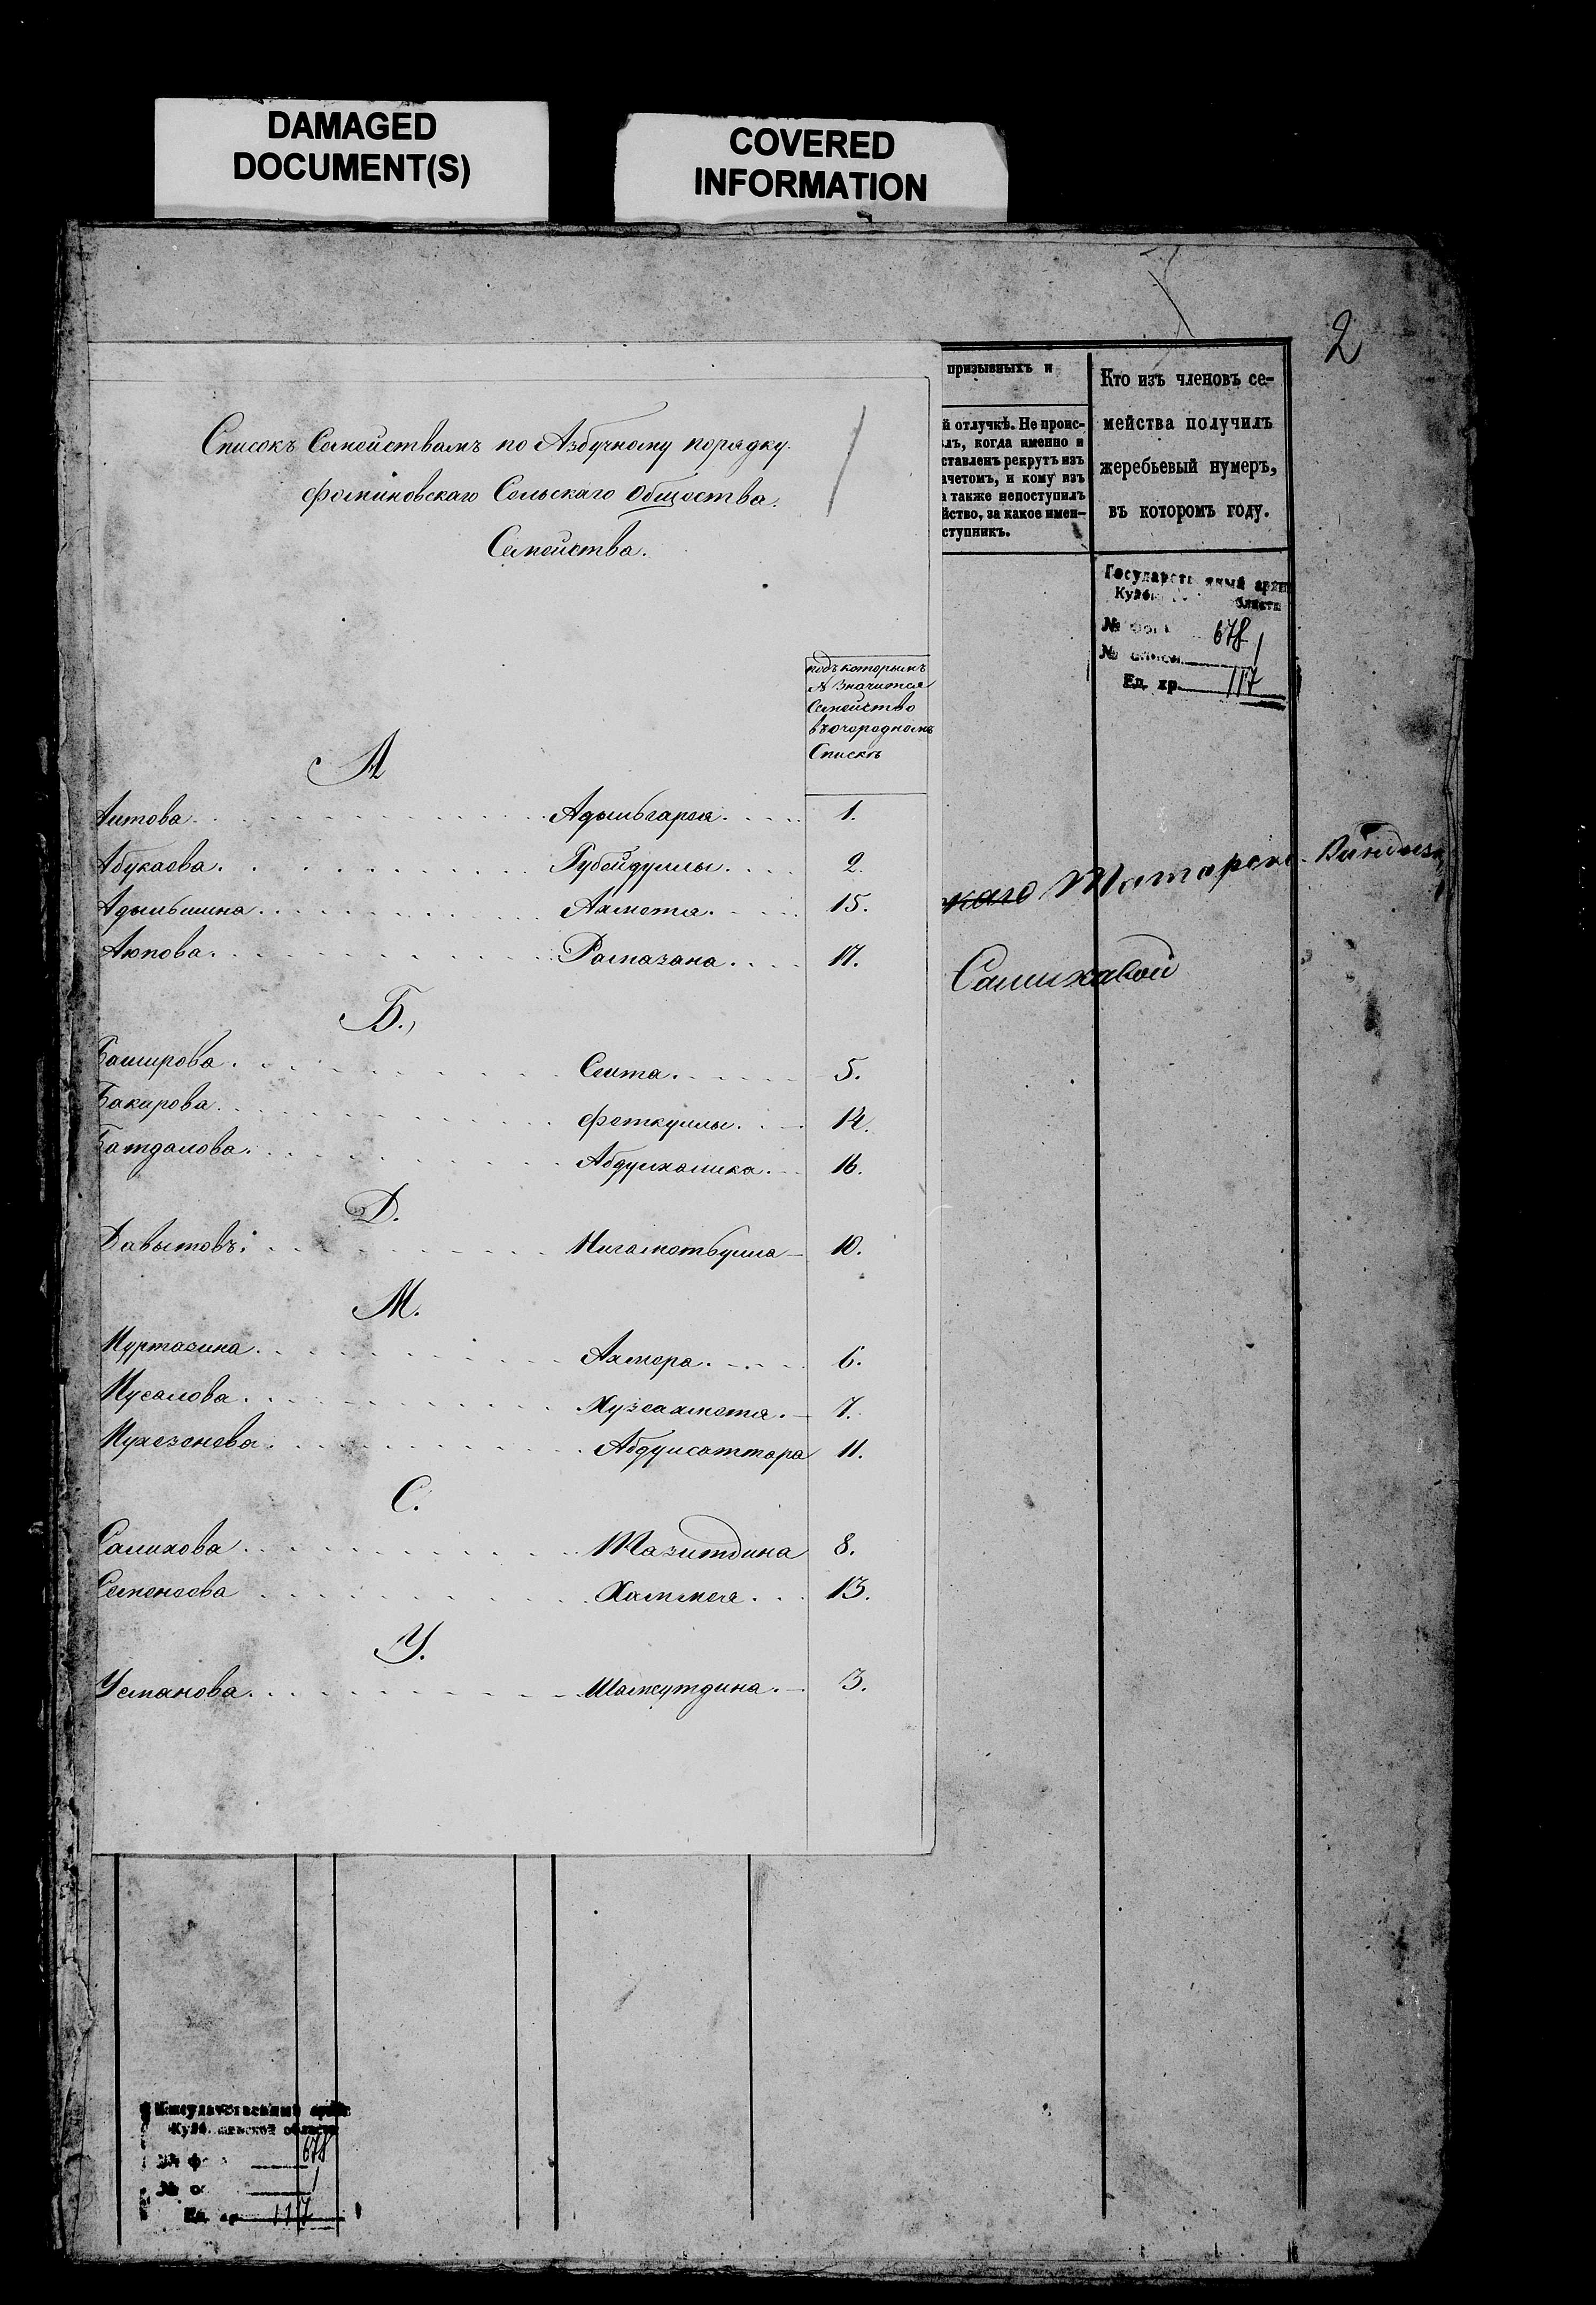 DAMAGED
DOCUMENT(S)
COVERED
INFORMATION
2
Списокъ Семействамъ по Азбучному порядку
фоминовскаго Сельскаго Общества.
Семейства.
подъ которымъ
№ значится
Семейство
въ очередномъ
Спискѣ
А
Аитова Адыльгарея 1.
Абукаева Губейдуллы 2.
Адыльшина Ахметя 15.
Аюпова Рамазана 17.
Б.
Баширова Сеита 5.
Бакирова Феткуллы 14.
Батдалова Абдулхалика 16.
Д.
Давытовъ Нигаметьулла 10.
М.
Муртазина Ахмера 6.
Мусалова Хузеахметя 7.
Мухезенева Абдулсаттара 11.
С.
Салихова Тазитдина 8.
Семенеева Хаммея 13.
У.
Усманова Шамсутдина 3.
призывныхъ и
й отлучкѣ. Не проис-
лъ, когда именно и
ставленъ рекрутъ изъ
ачетомъ, и кому изъ
а также непоступилъ
йство, за какое имен-
ступникъ.
Кто изъ членовъ се-
мейства получилъ
жеребьевый нумеръ,
въ которомъ году.
Государств нный архи
№ 678
№ описи 1
Ед. хр. 117
каго Татарск
Салиховой
678
1
Ед. хр 117